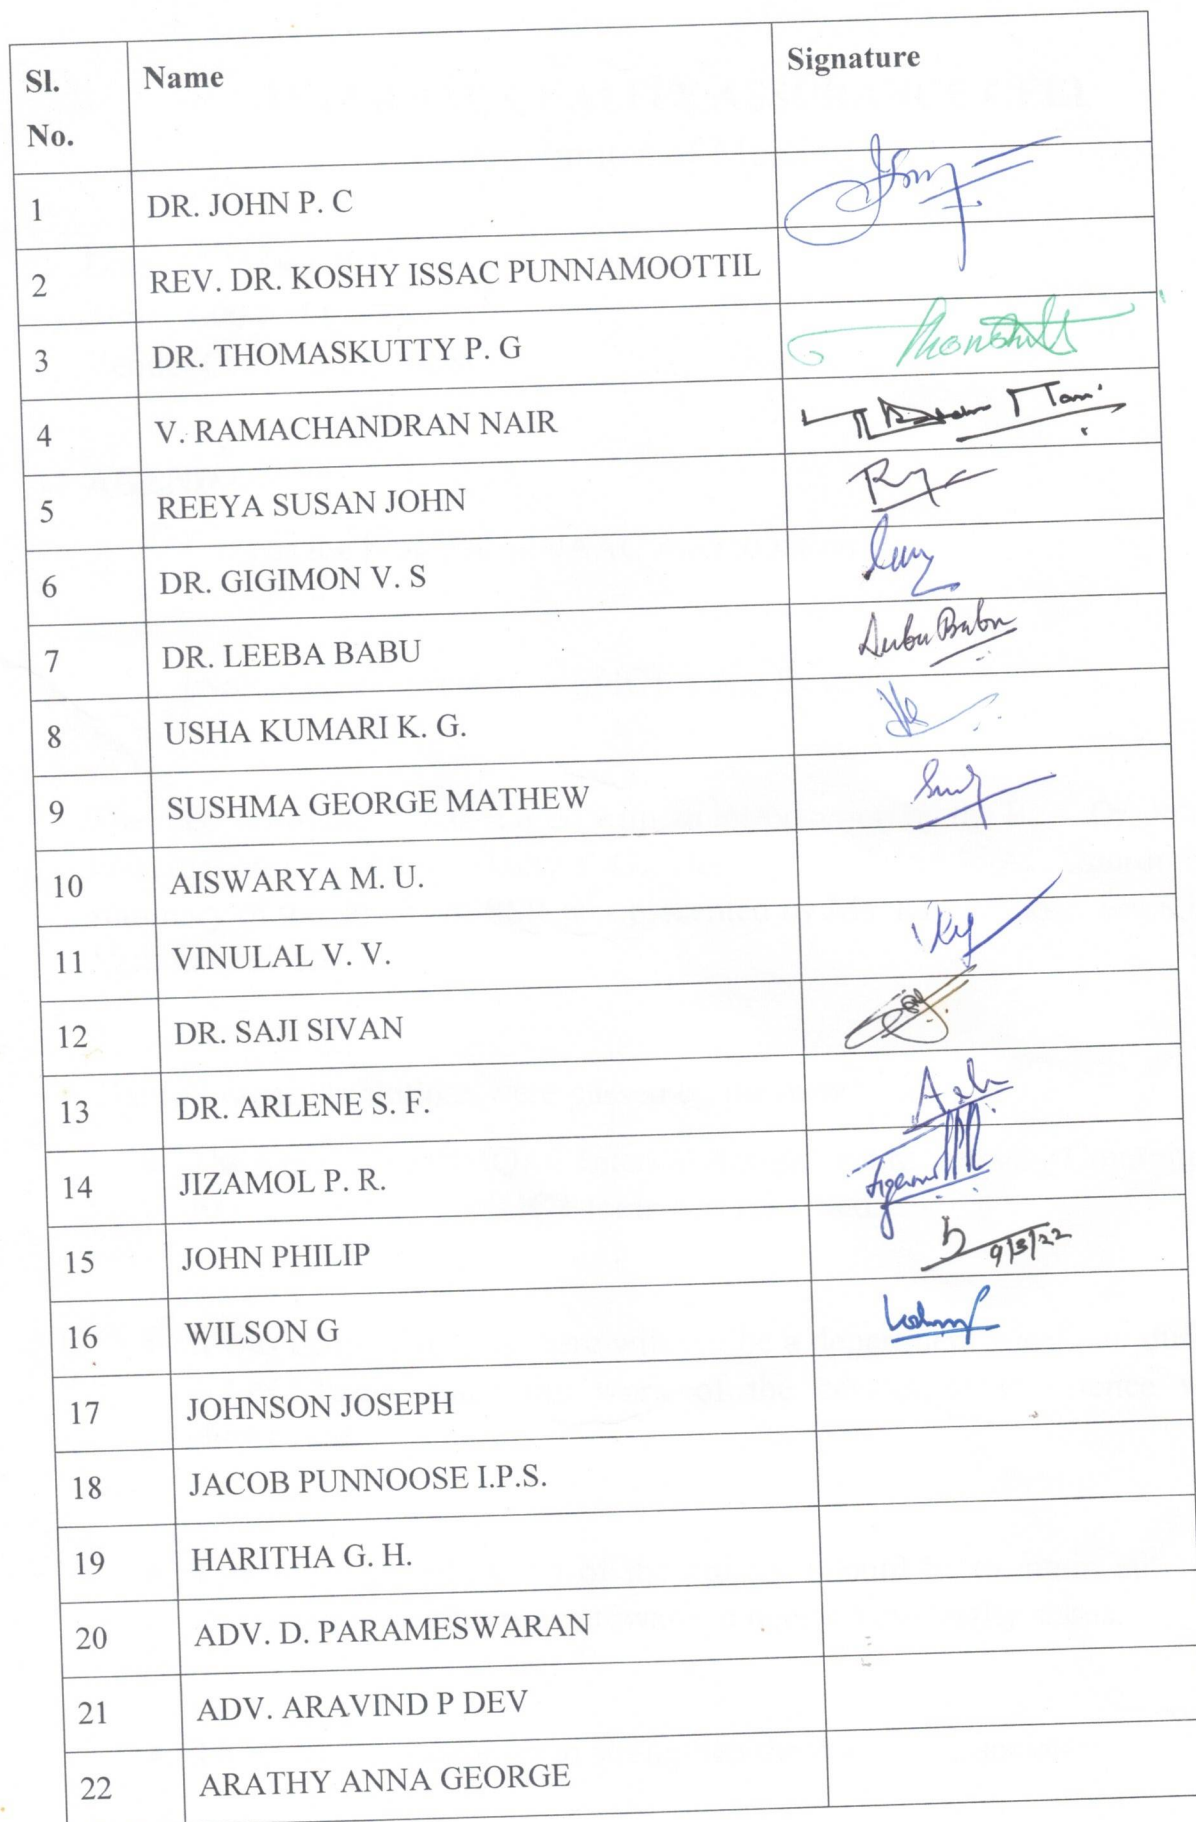 Sl. No. Name Signature
1 DR. JOHN P. C
2 REV. DR. KOSHY ISSAC PUNNAMOOTTIL
3 DR. THOMASKUTTY P. G
4 V. RAMACHANDRAN NAIR
5 REEYA SUSAN JOHN
6 DR. GIGIMON V. S
7 DR. LEEBA BABU Babu
8 USHA KUMARI K. G.
9 SUSHMA GEORGE MATHEW
10 AISWARYA M. U.
11 VINULAL V. V.
12 DR. SAJI SIVAN
13 DR. ARLENE S. F.
14 JIZAMOL P. R.
15 JOHN PHILIP 9/3/22
16 WILSON G
17 JOHNSON JOSEPH
18 JACOB PUNNOOSE I.P.S.
19 HARITHA G. H.
20 ADV. D. PARAMESWARAN
21 ADV. ARAVIND P DEV
22 ARATHY ANNA GEORGE